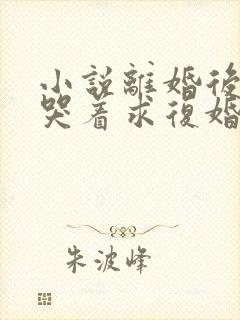 小說離婚後
哭着求復婚
朱波峰